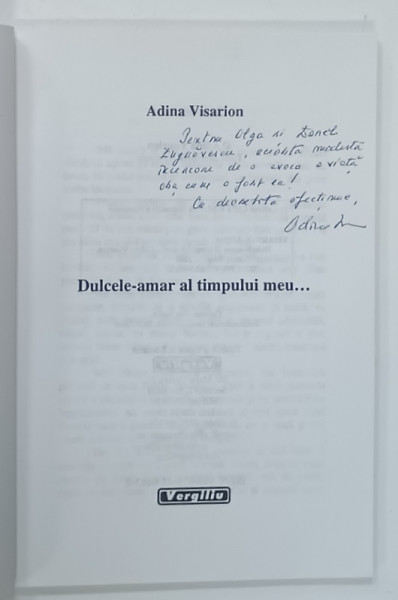 Adina Visarion
Pentru Olga și Ionel
Zugrăvescu, această modestă
încercare de a evoca o viață
așa cum a fost ea!
Cu deosebită afecțiune,
Adina
Dulcele-amar al timpului meu...
Vergiliu